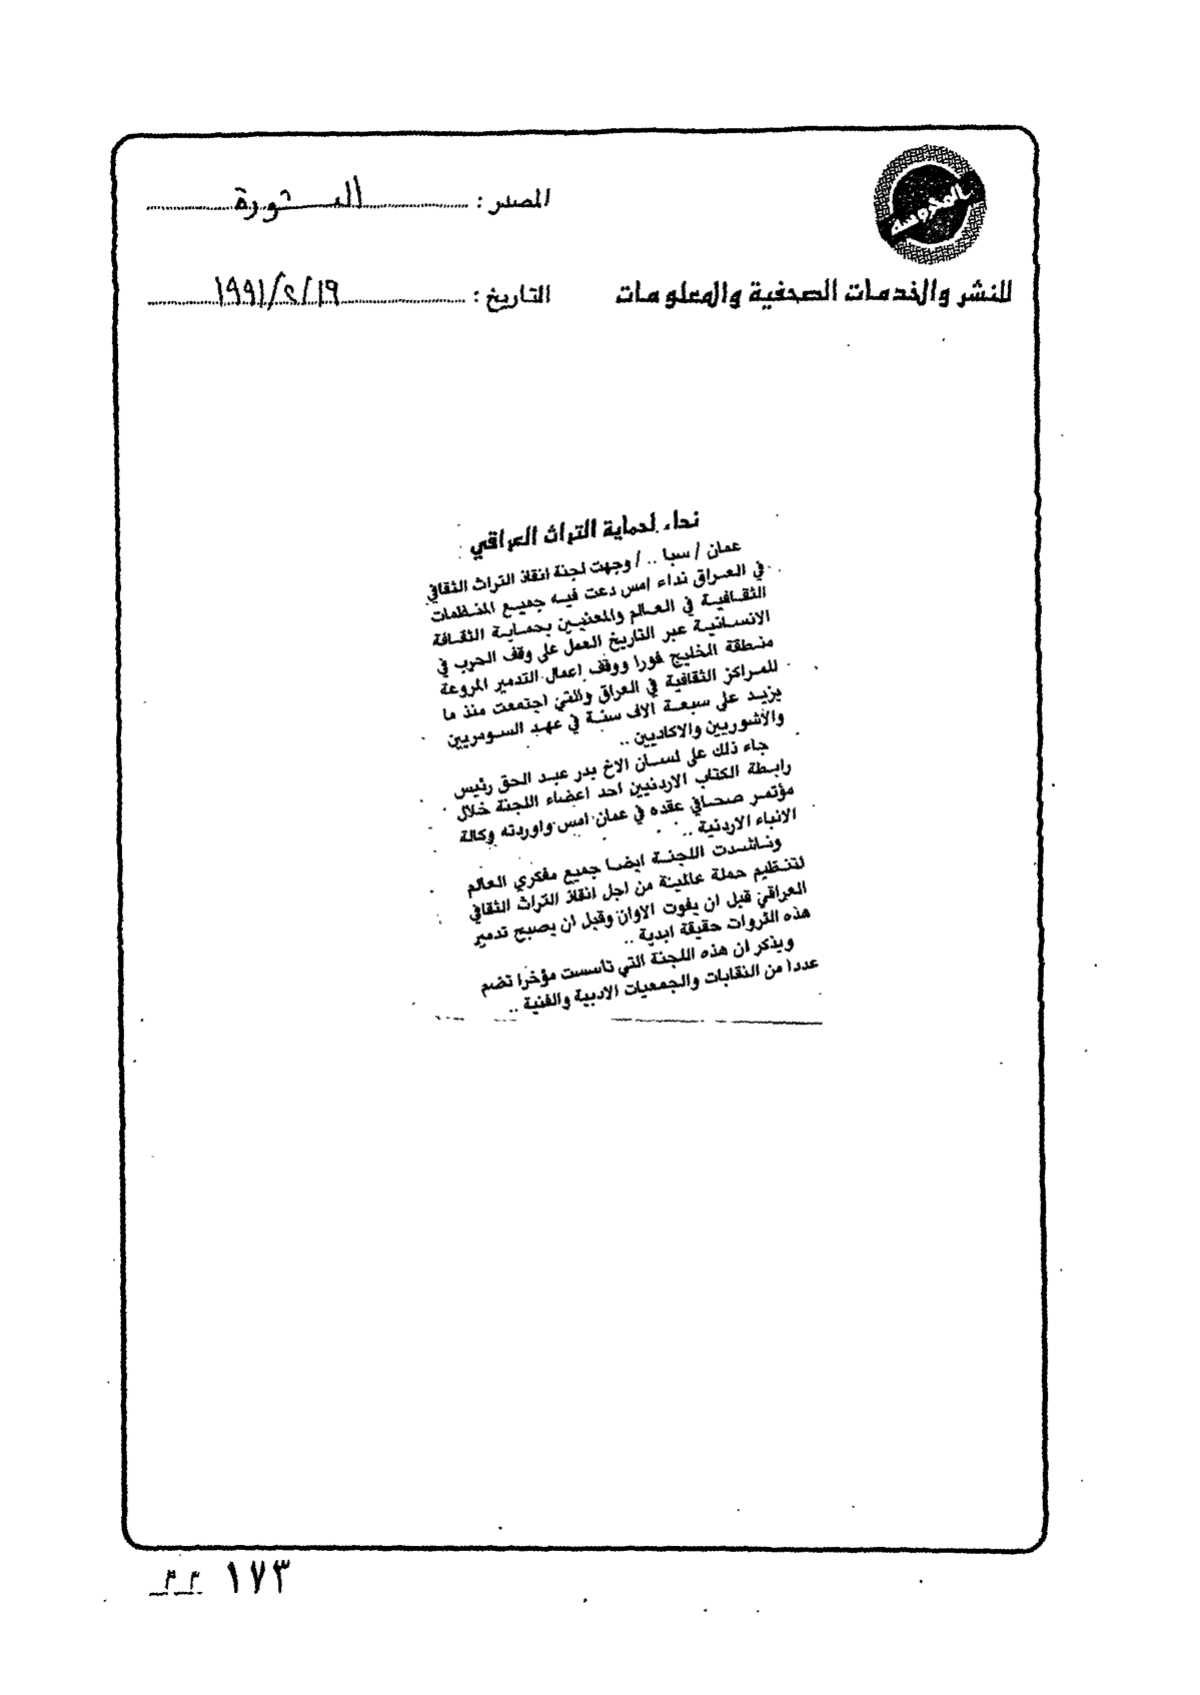 المحروسة
المصدر : الثورة
للنشر والخدمات الصحفية والمعلومات
التاريخ : ١٩/٢/١٩٩١
نداء لحماية التراث العراقي
عمان / سبا .. / وجهت لجنة انقاذ التراث الثقافي
في العراق نداء امس دعت فيه جميع المنظمات
الثقافية في العالم والمعنيين بحماية الثقافة
الانسانية عبر التاريخ العمل على وقف الحرب في
منطقة الخليج فورا ووقف اعمال التدمير المروعة
للمراكز الثقافية في العراق والتي اجتمعت منذ ما
يزيد على سبعة الاف سنة في عهد السومريين
والأشوريين والاكاديين ..
جاء ذلك على لسان الاخ بدر عبد الحق رئيس
رابطة الكتاب الاردنيين احد اعضاء اللجنة خلال
مؤتمر صحافي عقده في عمان امس واوردته وكالة
الانباء الاردنية ..
وناشدت اللجنة ايضا جميع مفكري العالم
لتنظيم حملة عالمية من اجل انقاذ التراث الثقافي
العراقي قبل ان يفوت الاوان وقبل ان يصبح تدمير
هذه الثروات حقيقة ابدية ..
ويذكر ان هذه اللجنة التي تأسست مؤخرا تضم
عددا من النقابات والجمعيات الادبية والفنية ..
١٧٣